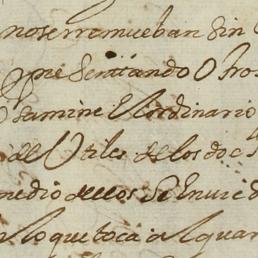 no se rremueban sin
presentando otros
examine el ordinario
de utiles de los doc
medio dellos se enuie d
lo que toca al quar